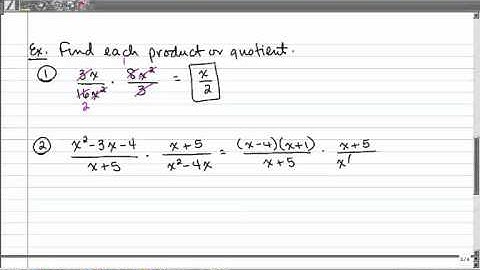 Ex. Find each product or quotient.
① 3x/16x² · 8x²/3 = x/2
2
② x²-3x-4/x+5 · x+5/x²-4x = (x-4)(x+1)/x+5 · x+5/x(